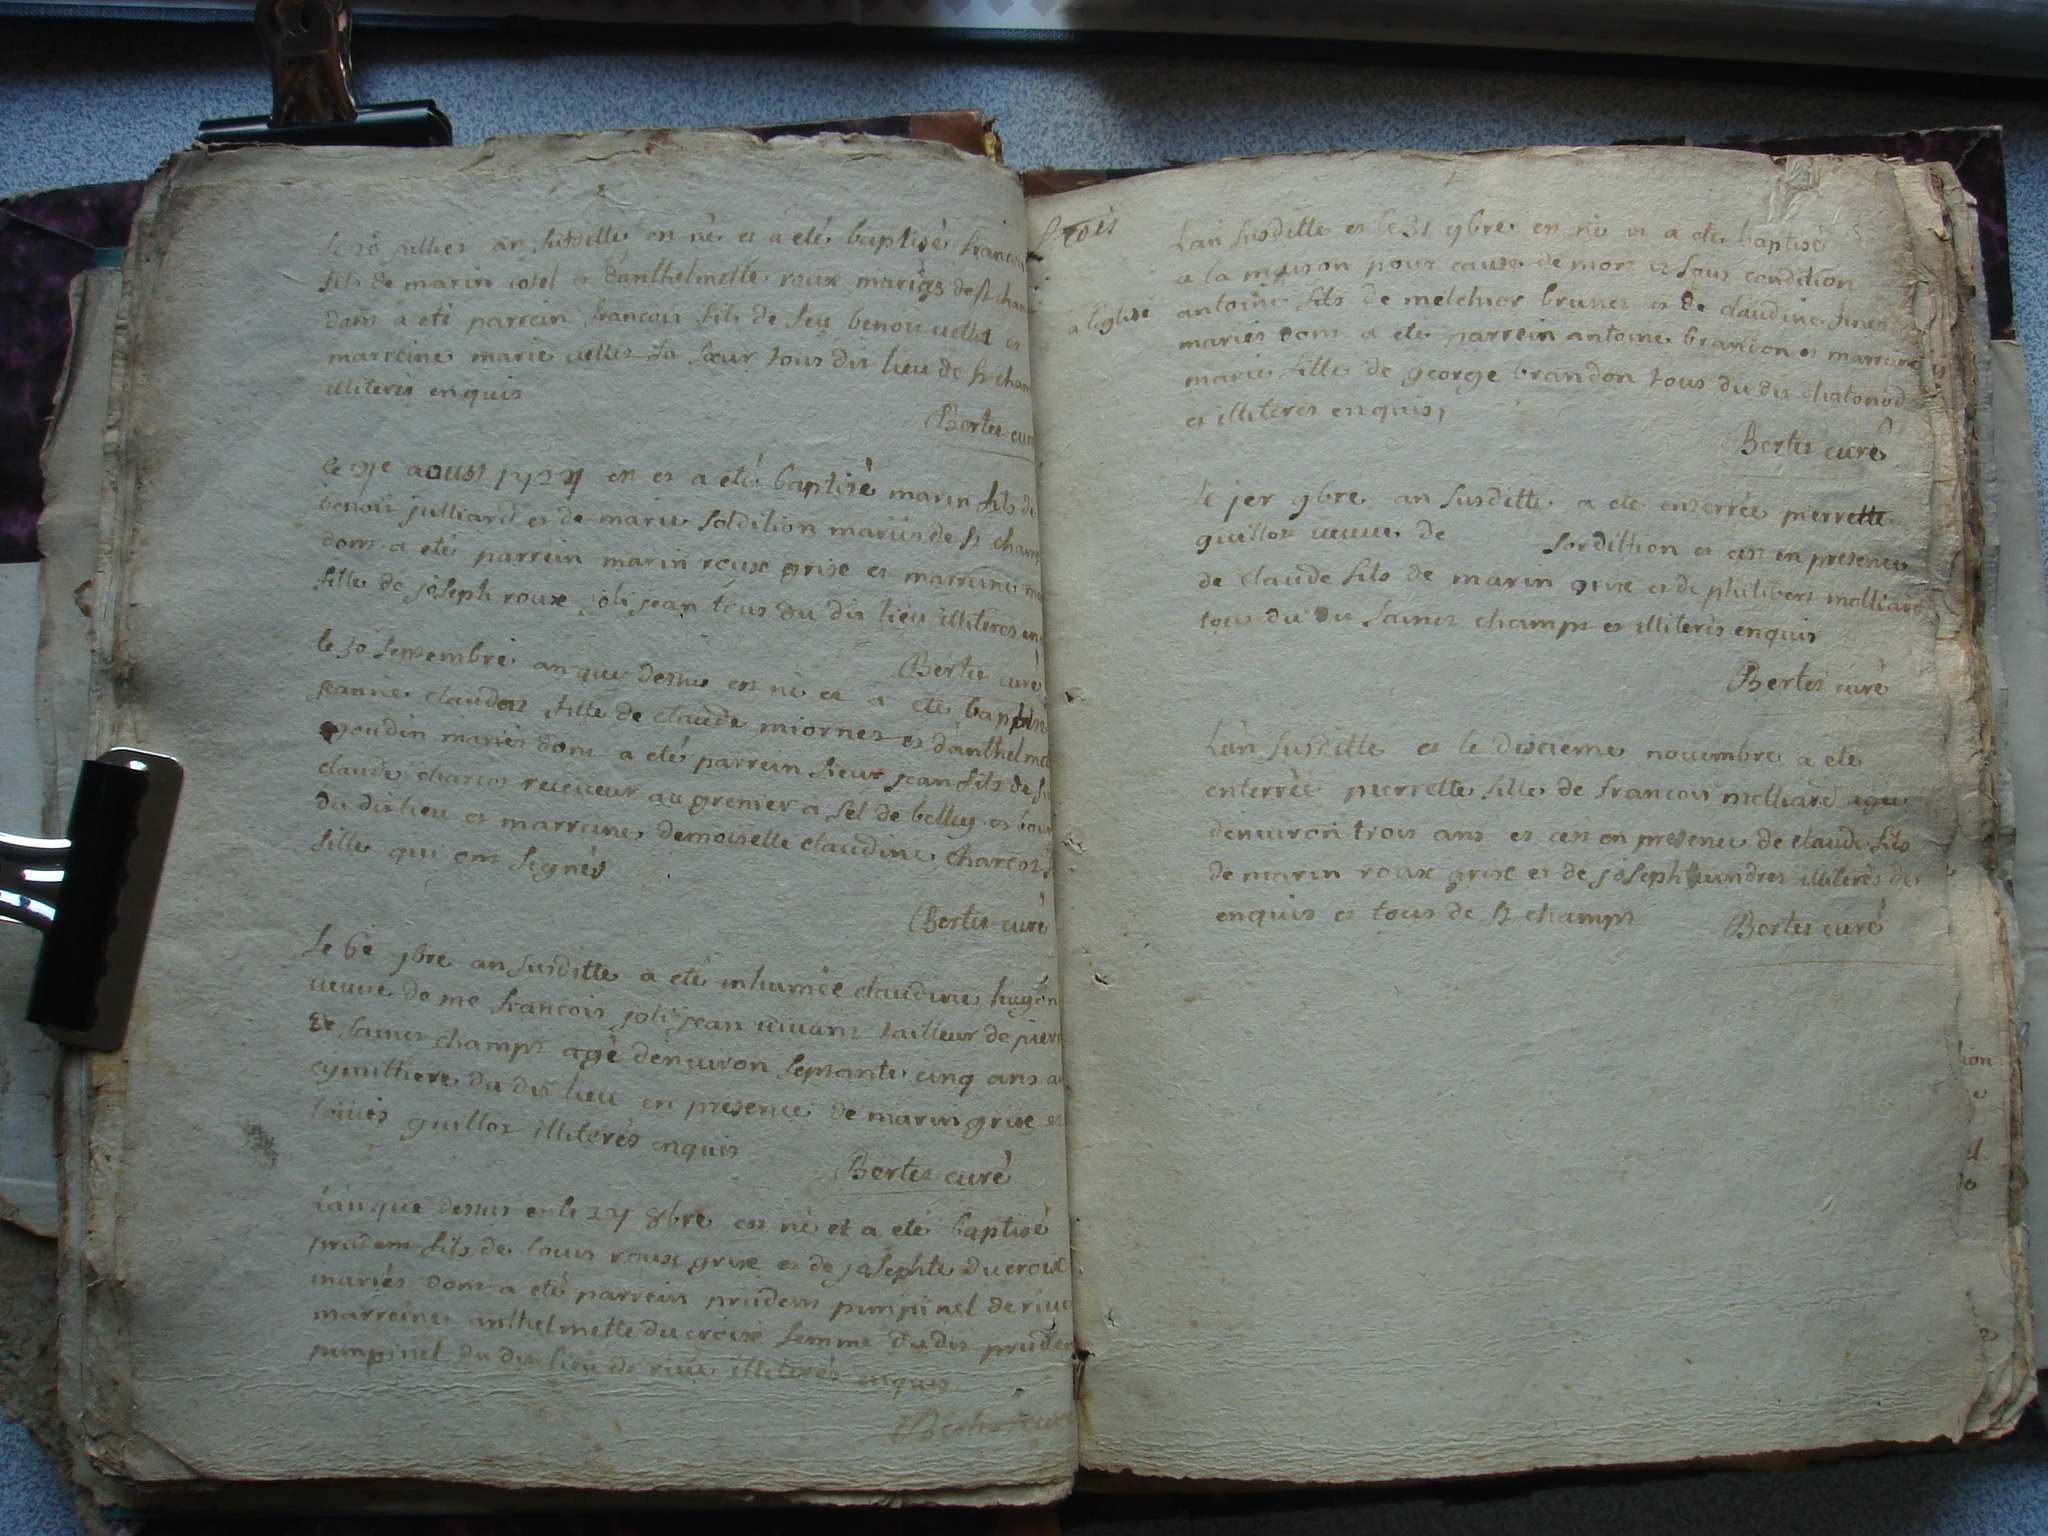 le 20 juilliet an susditte est né et a eté baptisé francois
fils de marin cotel et danthelmette roux mariés de st cham
dont a eté parrein francois fils de feu benoit vettet et
marreine marie vettet sa sœur tous dit lieu de st cham
illiterés enquis
Bertet curé
le 9e aoust 1727 est et a eté baptisé marin fils de
benoit julliard et de marie sordition mariés de st champ
dont a eté parrein marin roux grixe et marreine
fille de joseph roux joli jean tous du dit lieu illiteres en
Bertet curé
le 30 septembre an que dessus est né et a eté baptisé
jeanne claudat fille de claude miornet et danthelme
goudin mariés dont a eté parrein sieur jean fils de
claude charcot receveur au grenier a sel de belley et bour
du dit lieu et marreine demoiselle claudine charcot
fille qui ont signés
Bertet curé
le 6e 9bre an susditte a eté inhumée claudine hugon
veuve de me francois joli jean vivant tailleur de pierre
de sainct champt agé denuiron septante cinq ans au
cymittiere du dit lieu en presence de marin grixe et
louies guillot illiterés enquis
Bertet curé
Lan que dessus et le 27 8bre est né et a eté baptisé
prudent fils de louis roux grixe et de josephte ducroix
mariés dont a eté parrein prudent pimpinel de
marreine anthelmette ducroix femme du dit prudent
pimpinel du dit lieu de illiterés enquis
Bertet curé
a leglise
Lan susditte et le 31 9bre est né et a eté baptisé
a la maison pour cause de mort et sous condition
antoine fils de melchior brunet et de claudine
mariés dont a eté parrein antoine brandon et marreine
marie fille de george brandon tous du dit chatonod
et illiterés enquis,
Bertet curé
le jer 9bre an susditte a eté enterrée pierrette
guillot veuve de sordithion et cest en presence
de claude fils de marin grixe et de philibert molliard
tous du dit sainct champt et illiterés enquis
Bertet curé
Lan susditte et le dixieme nouembre a eté
enterrée pierrette fille de francois molliard agée
denuiron trois ans et cest en presence de claude fils
de marin roux grixe et de joseph illiterés de
enquis et tous de st champt
Bertet curé